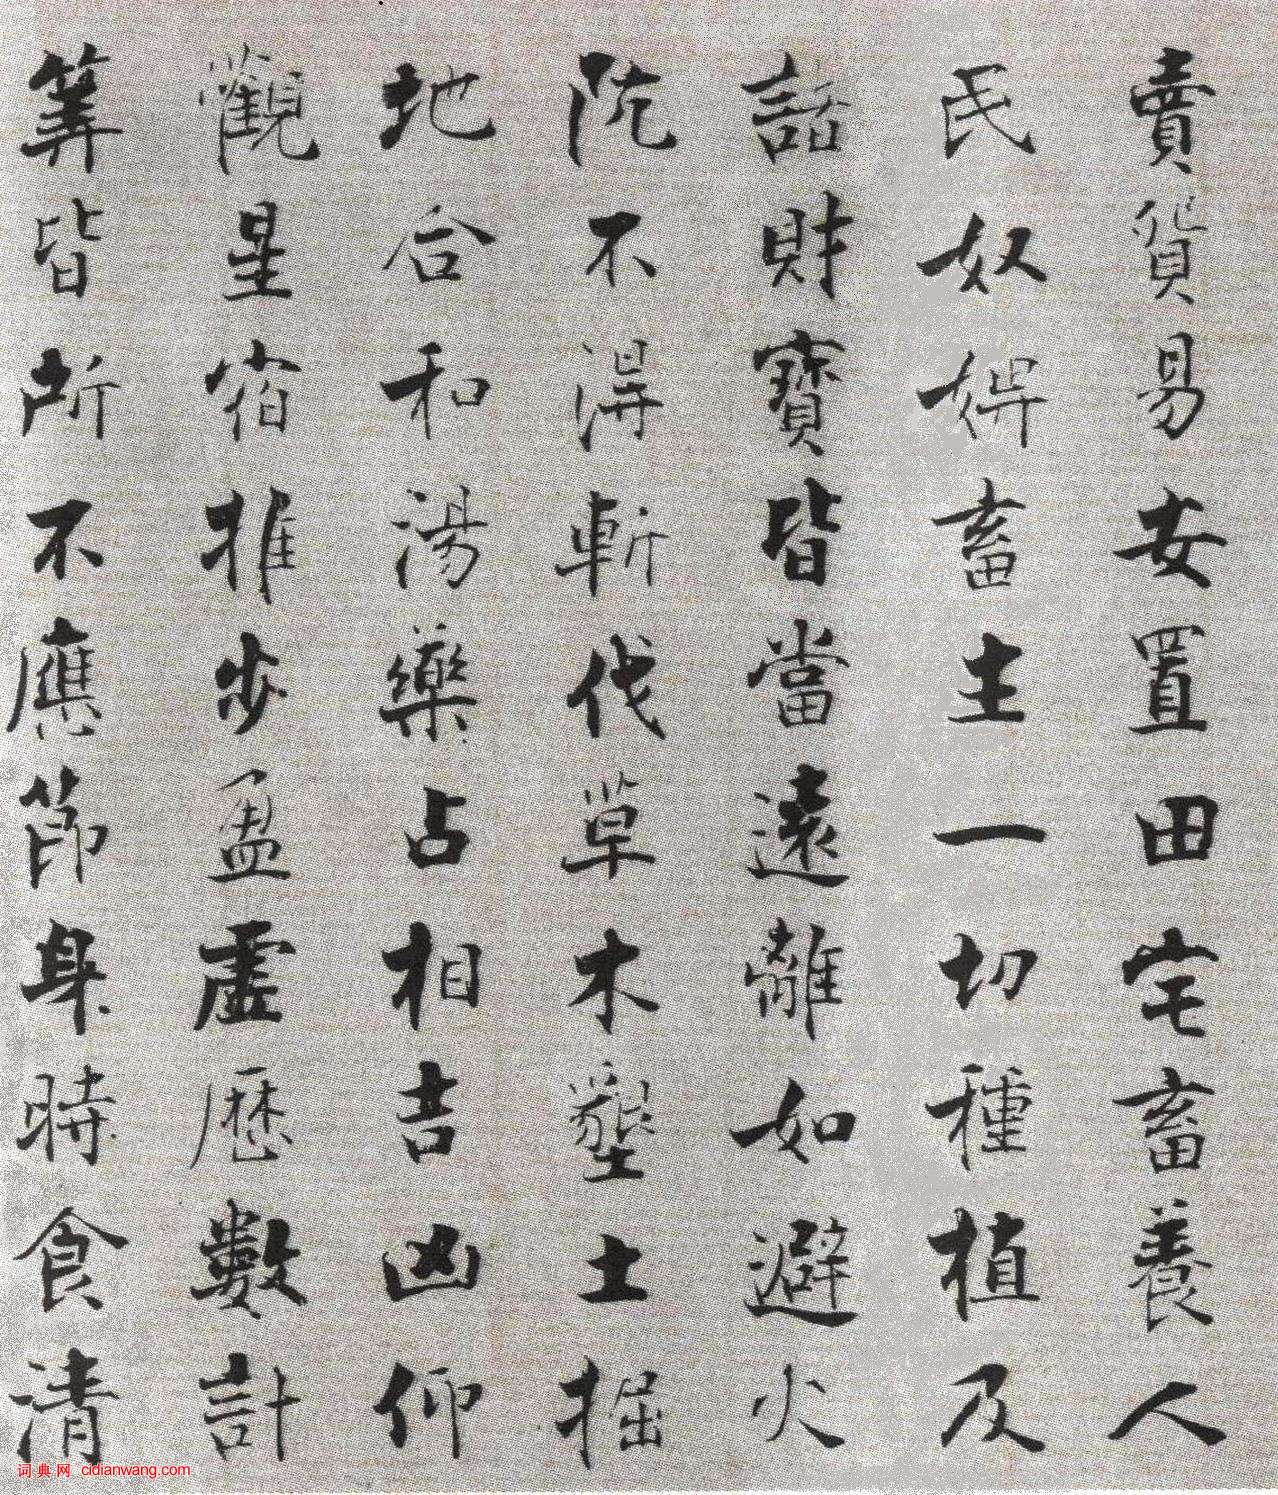 賣貨易安置田宅畜養人
民奴婢畜生一切種植及
諸財寶皆當遠離如避火
阬不得斬伐草木墾土掘
地合和湯藥占相吉凶仰
觀星宿推步盈虛曆數計
筭皆所不應節身時食清
词典网 cidianwang.com